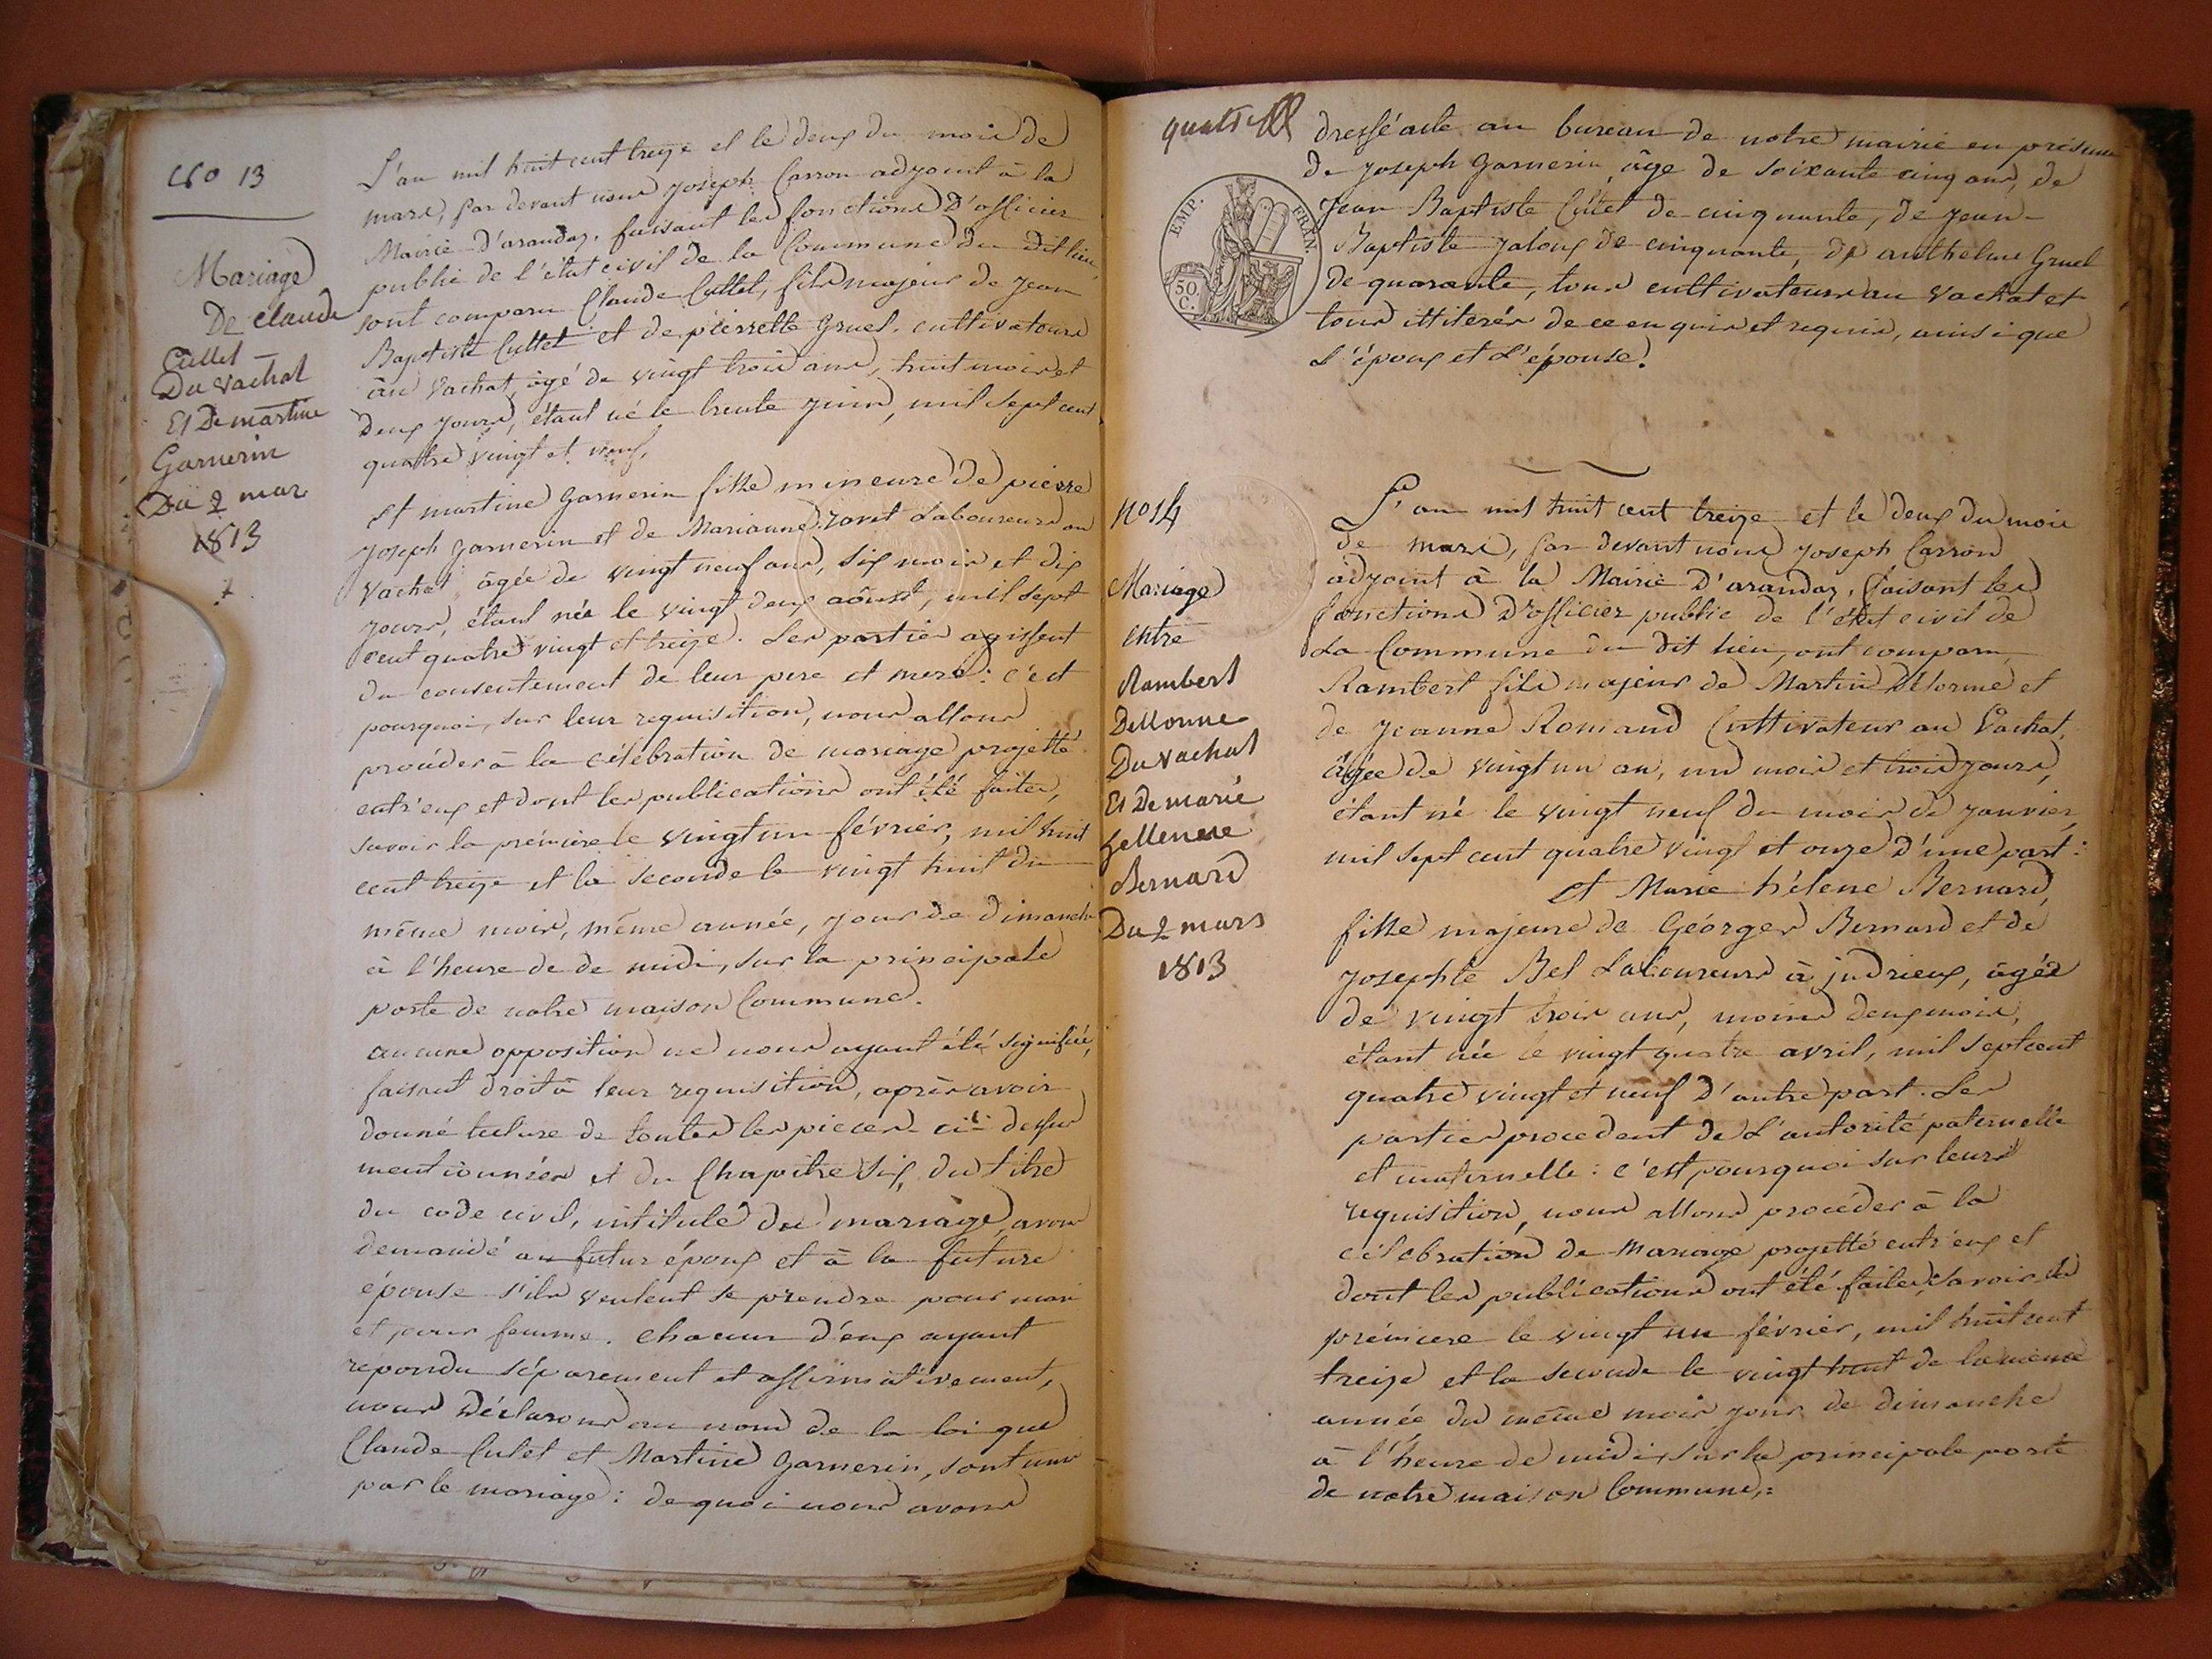 no 13
Mariage
De claude
Cullet
Du vachat
Et De martine
Garnerin
Du 2 mars
1813
L'an mil huit cent treize et le deux du mois de
mars, par devant nous joseph Carron adjoint à la
Mairie d'arandaz, faisant les fonctions d'officier
public de l'état civil de la Commune du dit lieu,
sont comparu Claude Cullet, fils majeur de jean
Baptiste Cullet et de pierrette Gruel, cultivateurs
au Vachat, âgé de vingt trois ans, huit mois et
deux jours, étant né le trente juin, mil sept cent
quatre vingt et neuf,
et martine Garnerin fille mineure de pierre
joseph Garnerin et de Marianne Zovet Laboureurs au
Vachat âgée de vingt neuf ans, six mois et dix
jours, étant née le vingt deux août, mil sept
cent quatre vingt et treize. Les parties agissent
du consentement de leur pere et mere: c'est
pourquoi, sur leur requisition, nous allons
procéder à la célébration de mariage projetté
entr'eux et dont les publications ont été faites,
savoir la première le vingt un février, mil huit
cent treize et la seconde le vingt huit du
même mois, même année, jour de dimanche
à l'heure de de midi, sur la principale
porte de notre maison Commune.
aucune opposition ne nous ayant été signifiée,
faisant droit à leur requisition, après avoir
donné lecture de toutes les pieces ci-dessus
mentionnées et du Chapitre six, du titre
du code civil, intitulé du mariage, avons
demandé au futur époux et à la future
épouse s'ils veulent se prendre pour mari
et pour femme. chacun d'eux ayant
repondu séparement et affirmativement,
nous déclarons au nom de la loi que
Claude Culet et Martine Garnerin, sont unis
par le mariage: de quoi nous avons
dressé acte au bureau de notre mairie en présence
de joseph Garnerin, âge de soixante cinq ans, de
jean Baptiste Cullet de cinquante, de jean-
Baptiste jaloux de cinquante, de anthelme Gruel
de quarante, tous cultivateurs au vachat et
tous illiterés de ce enquis et requis, ainsi que
L'époux et L'épouse.
EMP. FRIN.
50 C.
no 14
Mariage
entre
Rambert
Dellorme
Du vachat
Et De marie
hellene
Bernard
Du 2 mars
1813
L'an mil huit cent treize et le deux du mois
de mars, par devant nous joseph Carron
adjoint à la Mairie d'arandaz, faisant les
fonctions d'officier public de l'état civil de
La Commune du dit lieu, ont comparu
Rambert fils majeur de Martin Delorme et
de jeanne Romand Cultivateur au Vachat,
âgée de vingt un an, un mois et trois jours,
étant né le vingt neuf du mois de janvier,
mil sept cent quatre vingt et onze d'une part:
et Marie hélene Bernard,
fille majeure de Géorges Bernard et de
josephte Bel Laboureurs à judrieux, âgée
de vingt trois ans, moins deux mois,
étant née le vingt quatre avril, mil sept cent
quatre vingt et neuf d'autre part. Les
parties procedent de L'autorité paternelle
et maternelle: c'est pourquoi sur leur
requisition, nous allons procéder à la
célébration de mariage projetté entr'eux et
dont les publications ont été faites, savoir la
première le vingt un février, mil huit cent
treize et la seconde le vingt huit de la même
année du même mois jour de dimanche
à l'heure de midi, sur la principale porte
de notre maison Commune,: